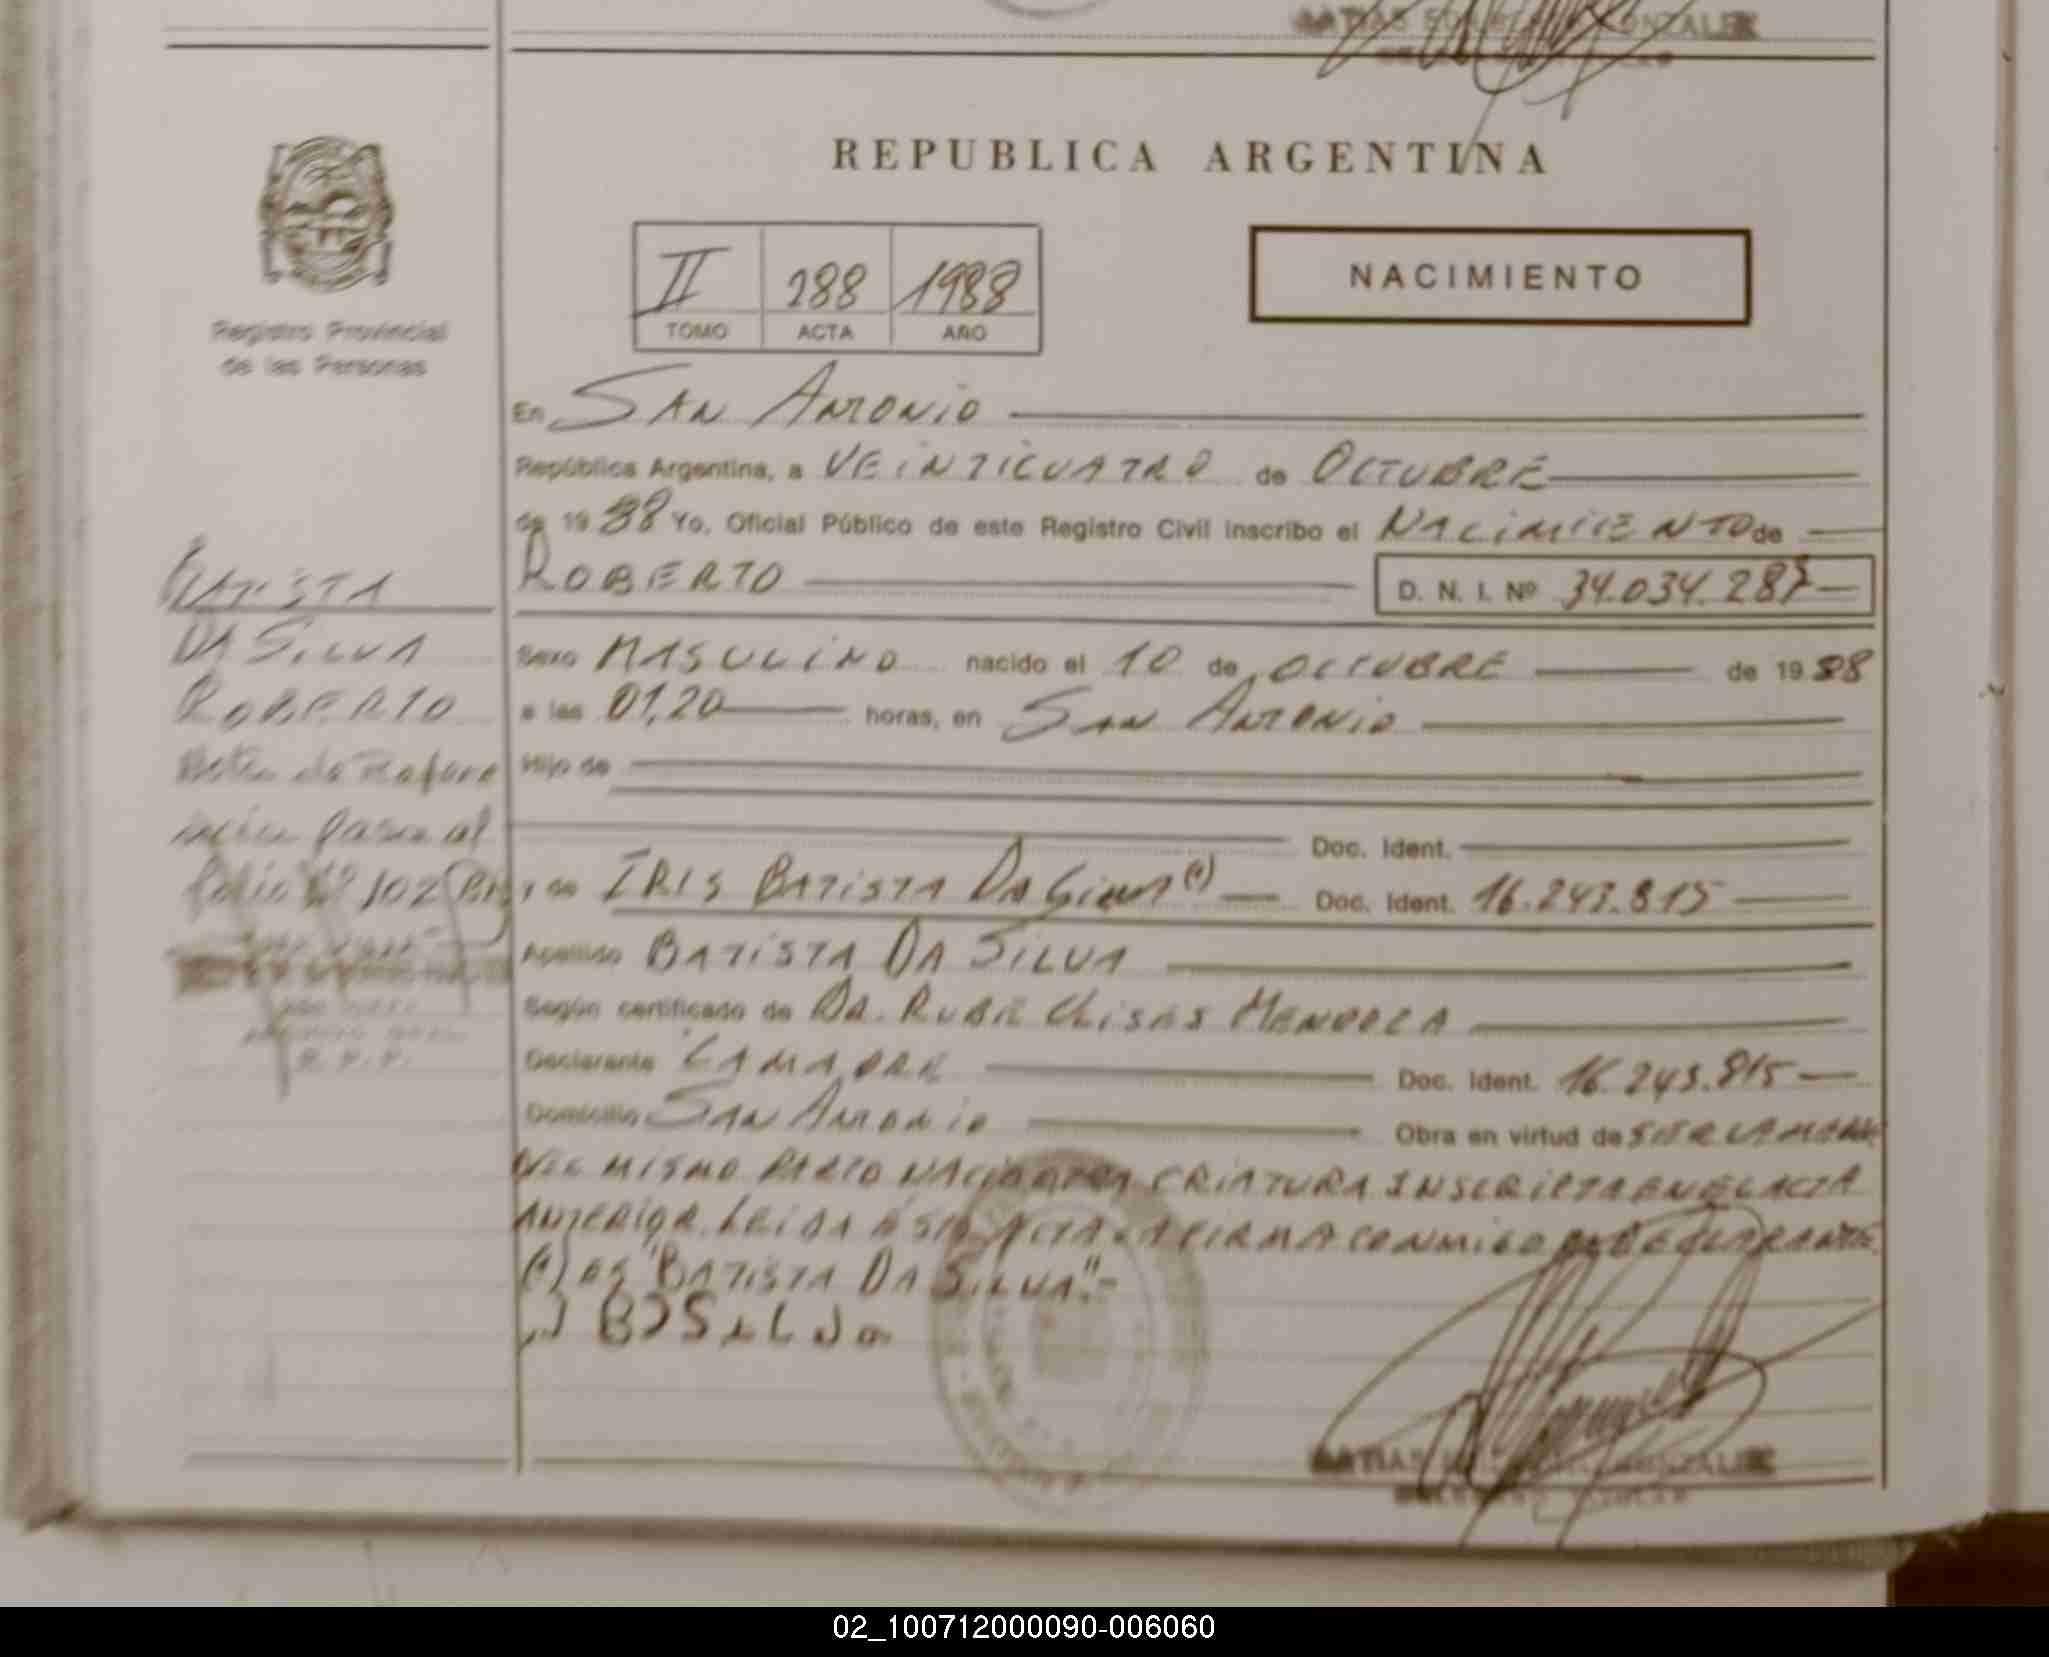 GONZALEZ
REPUBLICA ARGENTINA
II 288 1988
TOMO ACTA AÑO
NACIMIENTO
Registro Provincial
de las Personas
En SAN ANTONIO
República Argentina, a VEINTICUATRO de OCTUBRE
de 19 88 Yo, Oficial Público de este Registro Civil inscribo el NACIMIENTO de
ROBERTO D. N. I. Nº 34.034.287
BATISTA
DA SILVA
ROBERTO
Nota de Refere
ncia pasa al
folio Nº 102 (Bis)
Sexo MASCULINO nacido el 10 de OCTUBRE de 19 88
a las 01,20 horas, en SAN ANTONIO
Hijo de
Doc. Ident.
y de IRIS BATISTA DA (*) Doc. Ident. 16.243.815
Apellido BATISTA DA SILVA
Según certificado de DR. MENDOZA
Declarante LA MADRE Doc. Ident. 16.243.815
Domicilio SAN ANTONIO Obra en virtud de SER LA MADRE
DEL MISMO PARTO NACIO OTRA CRIATURA INSCRIPTA EN EL ACTA
ANTERIOR. LEIDA ESTA ACTA LA FIRMA CONMIGO DECLARANTE
(*) ES "BATISTA DA SILVA".-
MATIAS GONZALEZ
R. P. P.
02_100712000090-006060